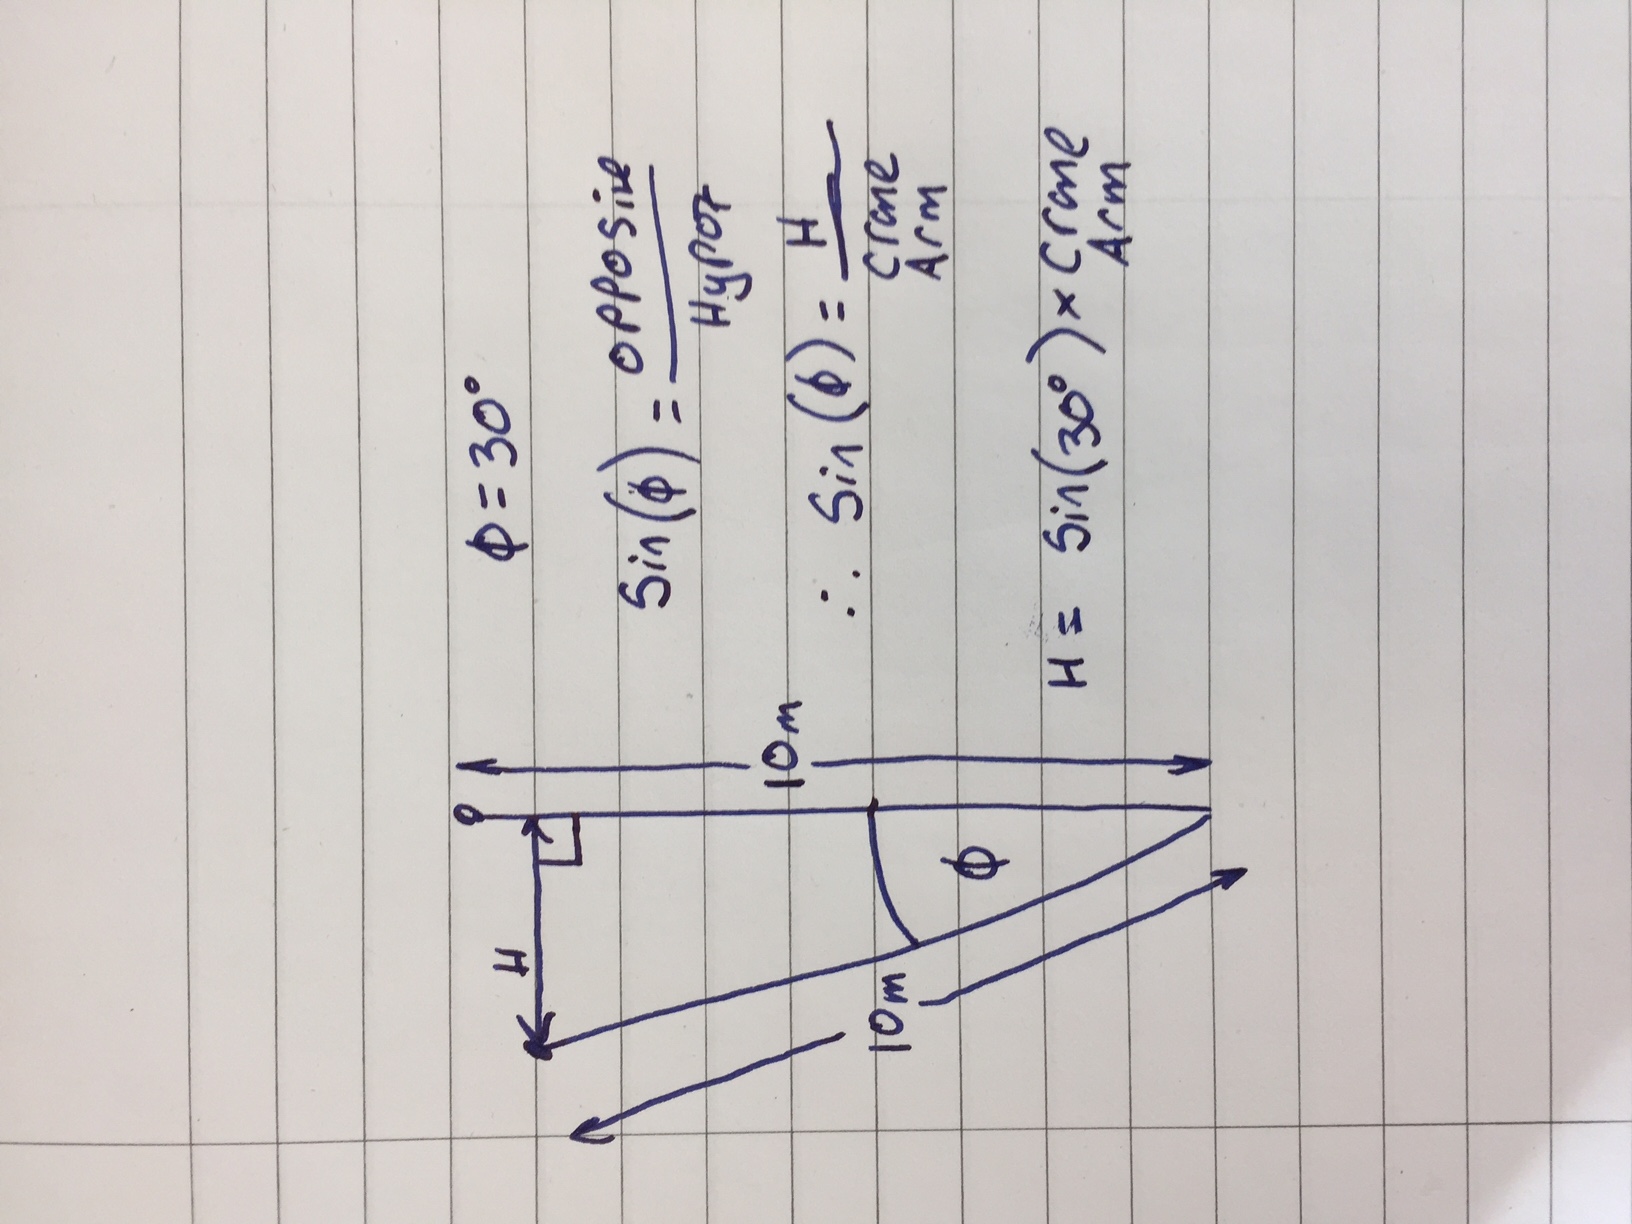 ϕ = 30°
Sin(ϕ) = opposite
Hypot
∴ Sin(ϕ) = H
Crane
Arm
H = Sin(30°) × Crane
Arm
10m
H
ϕ
10m